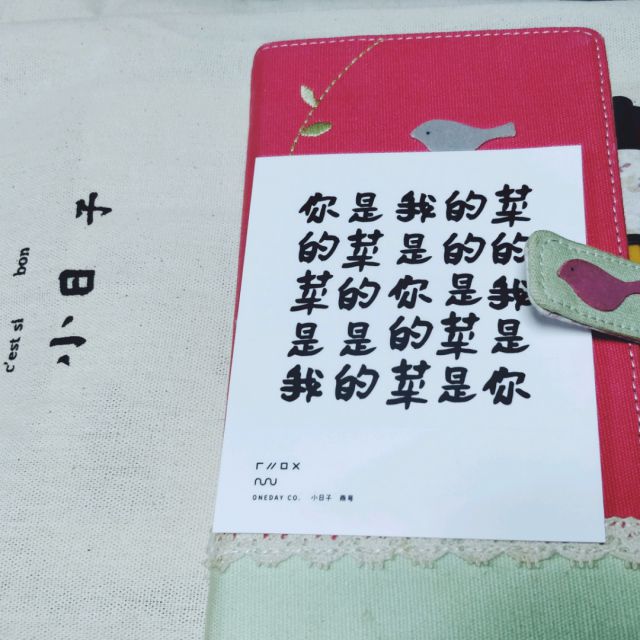 你是我的菜
的菜是的的
菜的你是我
是是的菜是
我的菜是你
ONEDAY CO. 小日子 商号
小日子
c'est si bon